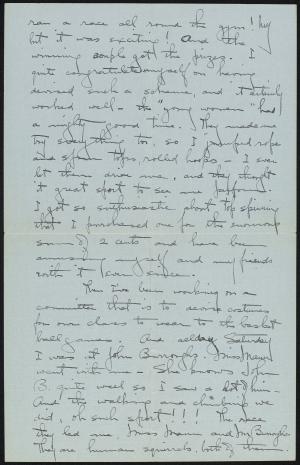 ran a race all round the gym! My
but it was exciting! And the
winning couple got the prizes. I
quite congratulated myself on having
devised such a scheme, and it certainly
worked well – the "young women" had
a mighty good time. They made me
try everything too, so I jumped rope
and spun tops, rolled hoops – I even
let them drive me, and they thought
it great sport to see me performing.
I got so enthusiastic about top spinning
that I purchased one for the enormous
sum of 2 cents and have been
amusing myself and my friends
with it ever since.
Then I've been working on a
committee that is to secure costumes
for our class to wear to the basket
ball games. And all day Saturday
I was at John Burroughs. Miss Mann
went with me – She knows John
B. quite well so I saw a lot of him –
And the walking and climbing we
did, oh such sport!!! The race
they led me, Miss Mann and Mr Burroughs
They are human squirrels, both of them.